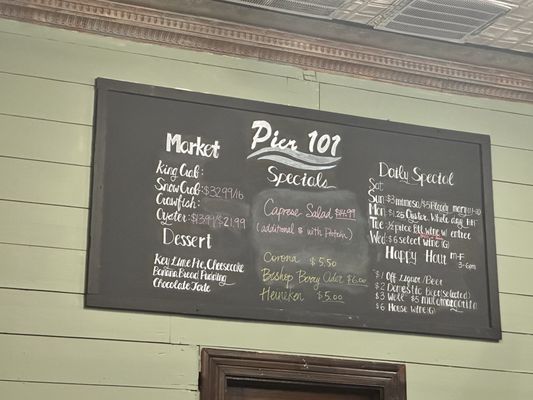 Pier 101
Specials
Market
King Crab:
Snow Crab: $32.99/lb
Crawfish:
Oyster: $13.99/$21.99
Dessert
Key Lime Pie, Cheesecake
Banana Bread Pudding
Chocolate
Caprese Salad $14.99
(additional $ with
Corona $5.50
Bishop Cider $6.00
Heineken $5.00
Daily Special
Sat
Sun $3 mimosa/$5
Mon $1.25 Oyster Whole day
Tue 1/2 price Btl wine w entree
Wed $6 select wine (G)
Happy Hour M-F
3-6pm
$1 Off Liquor/Beer
$2 Domestic Beer (selected)
$3 Well $5
$6 House wine (G)